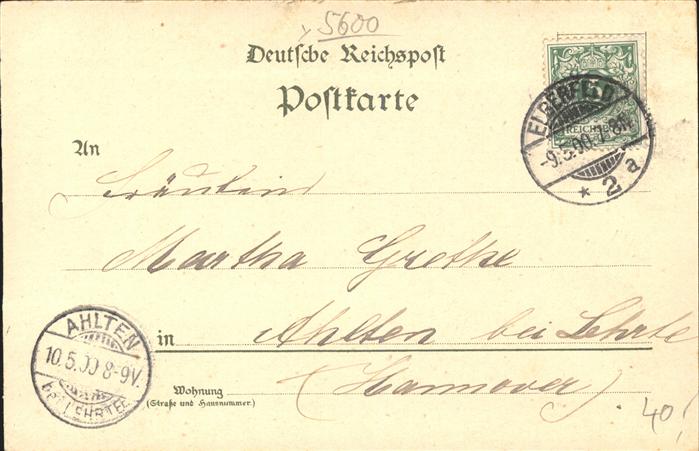 5600
Deutsche Reichspost
Postkarte
ELBERFELD
-9.5.00.7-8N.
* 2 a
REICHSP
An
Fräulein
Martha Grethe
in Ahlten bei Lehrte
(Hannover)
Wohnung
(Straße und Hausnummer.)
AHLTEN
10.5.00 8-9V.
bei LEHRTE
40